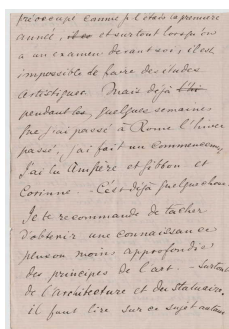 préoccupé comme je l'étais la première
année, et surtout lorsqu'on
a un examen devant soi, il est
impossible de faire des études
artistiques. Mais déjà
pendant les quelques semaines
que j'ai passé à Rome l'hiver
passé, j'ai fait un commencement
J'ai lu Ampère et Gibbon et
Corinne... C'est déjà quelque chose.
Je te recommande de tâcher
d'obtenir une connaissance
plus ou moins approfondie
des principes de l'art. - Surtout
de l'architecture et du statuaire.
il faut lire sur ce sujet autant